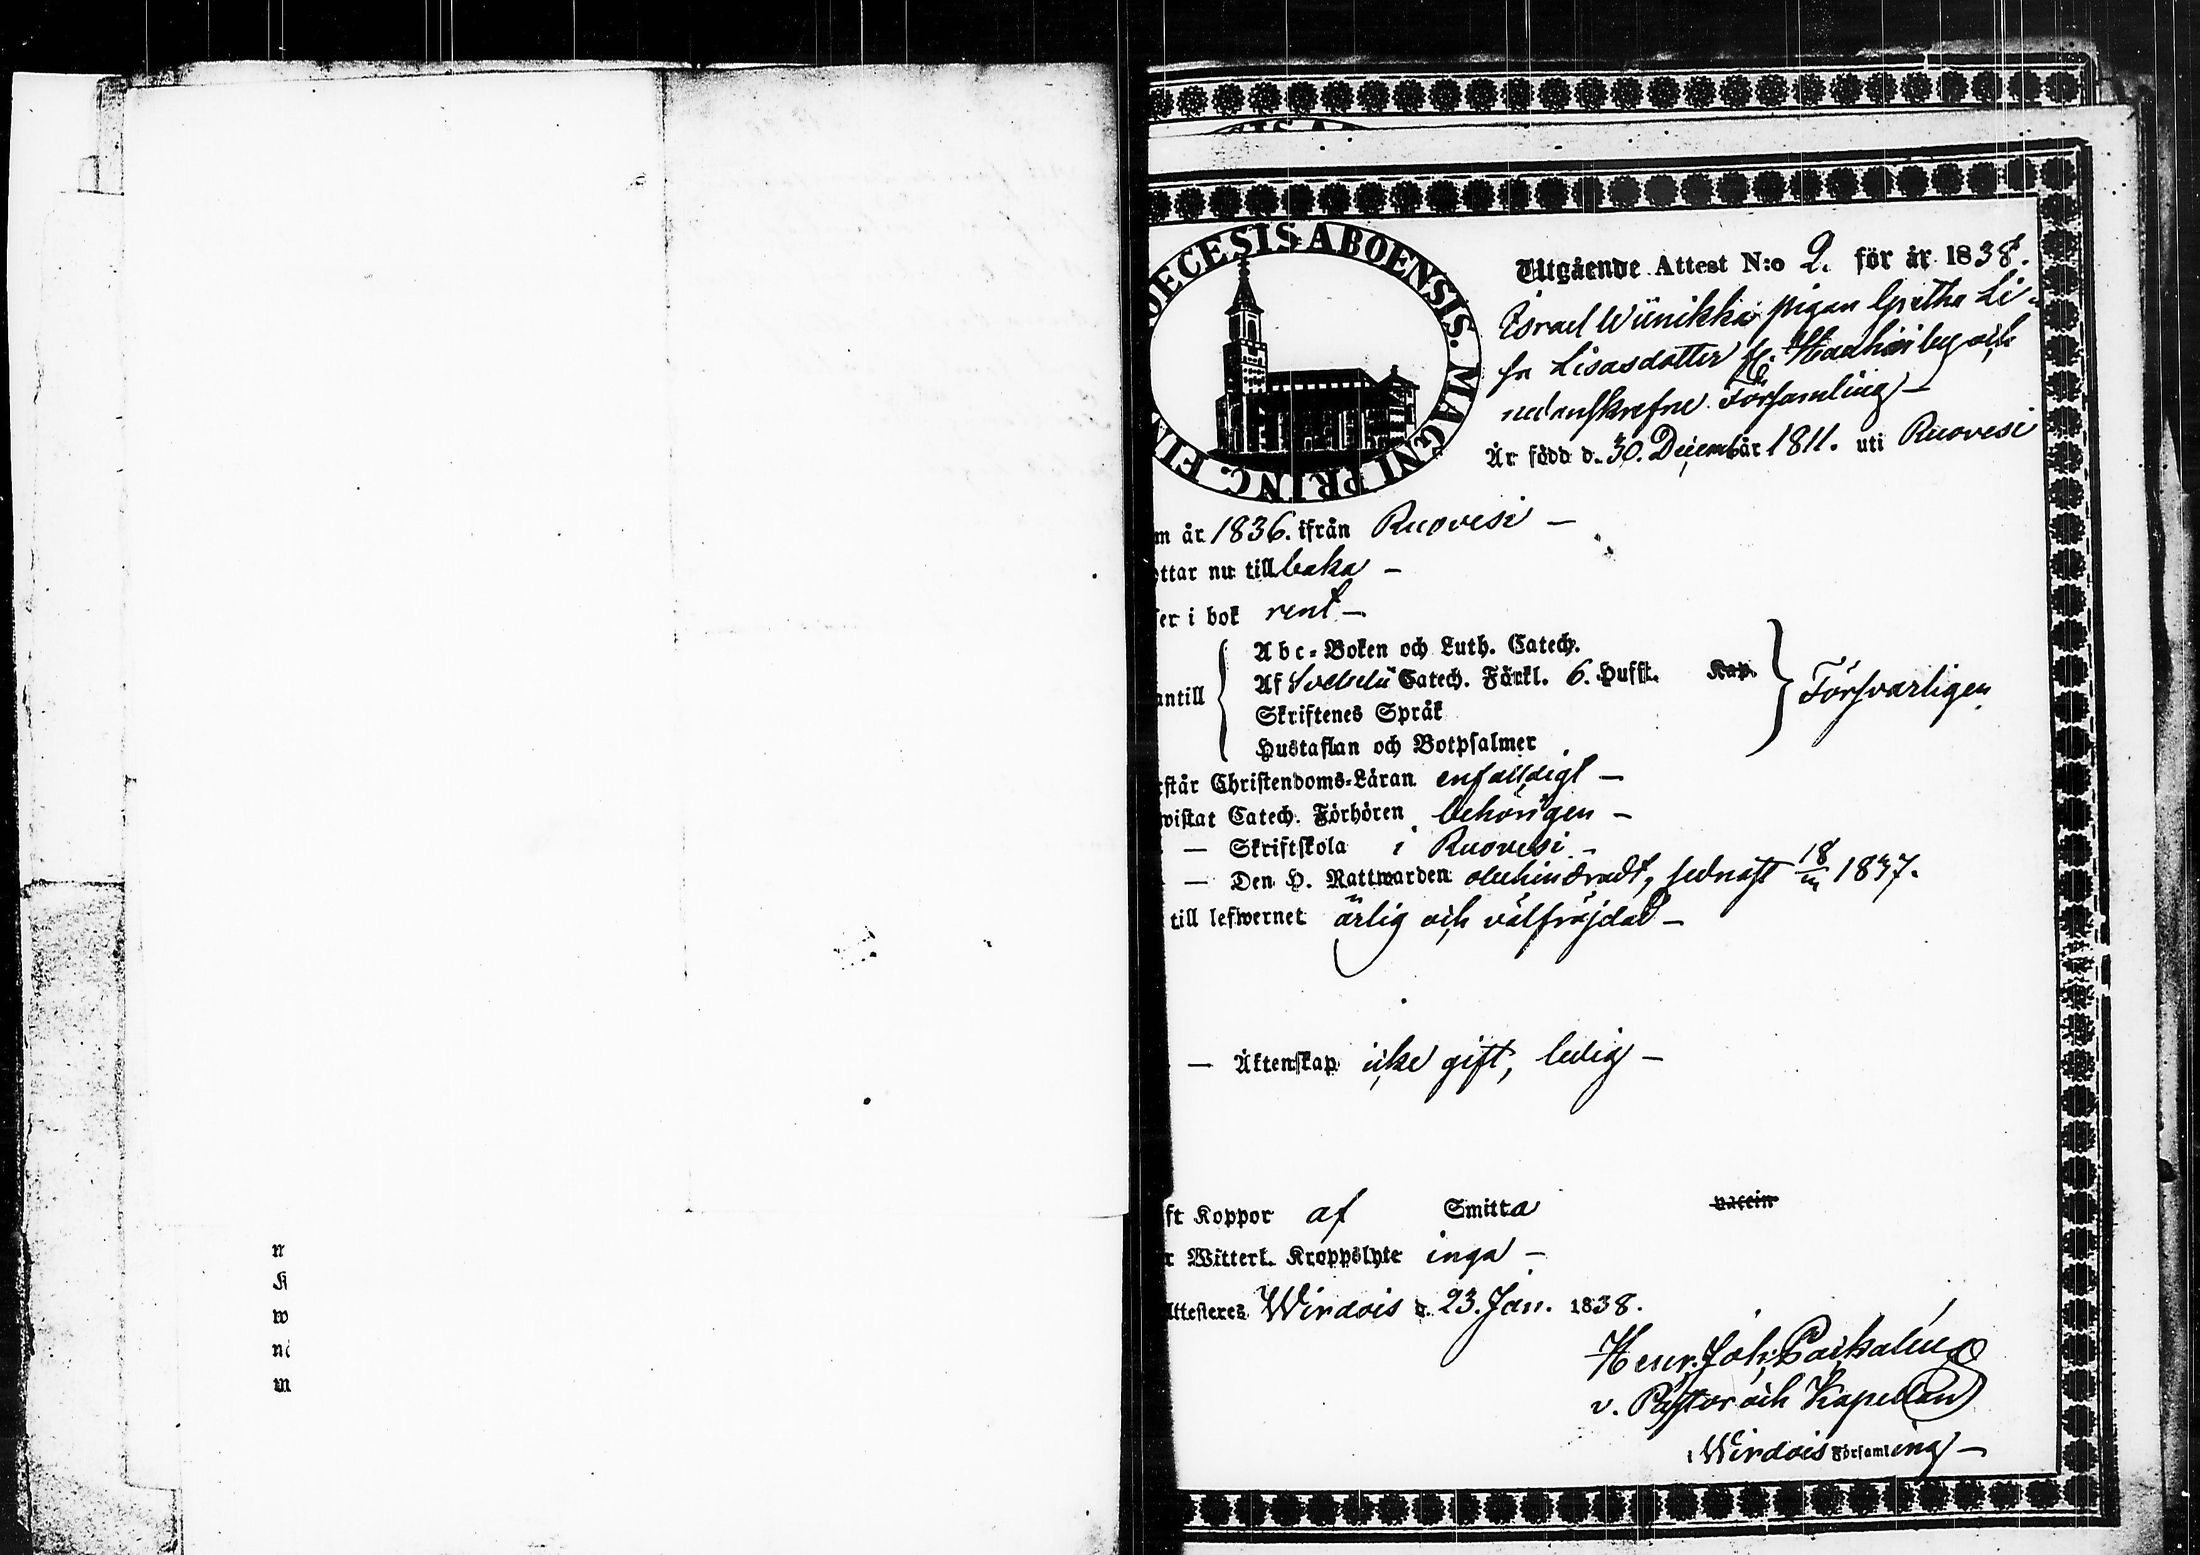 DECESIS ABOENSIS. MAGNI PRINC. FIN
Utgående Attest N:o 2. för år 1838.
Israel Wiinikka pigan Gretha Li-
sa Lisasdotter fr. och
nedanskrefne Församling —
Är född d. 30. Decemb år 1811. uti Ruovesi
m år 1836. ifrån Ruovesi —
ottar nu tillbaka —
ser i bok rent —
Abc-Boken och Luth. Catech.
Af Svebelii Catech. Förkl. 6. Hufst. Kap.
antill
Försvarligen
Skriftenes Språk
Hustaflan och Botpsalmer
rstår Christendoms-Läran enfaldigt —
wistat Catech. Förhören behörigen —
— Skriftskola i Ruovesi —
— Den H. Nattwarden obehindradt, sednast 18/ 1837.
till lefwernet ärlig och välfräjdad —
— Äktenskap icke gift, ledig —
ft Koppor af Smitta vaccin
r Witterl. Kroppslyte inga —
Attesteres Wirdois d. 23. Jan. 1838.
n
K
w
m
Henr. Joh.
v. Pastor och Kapellan
i Wirdois Församling —